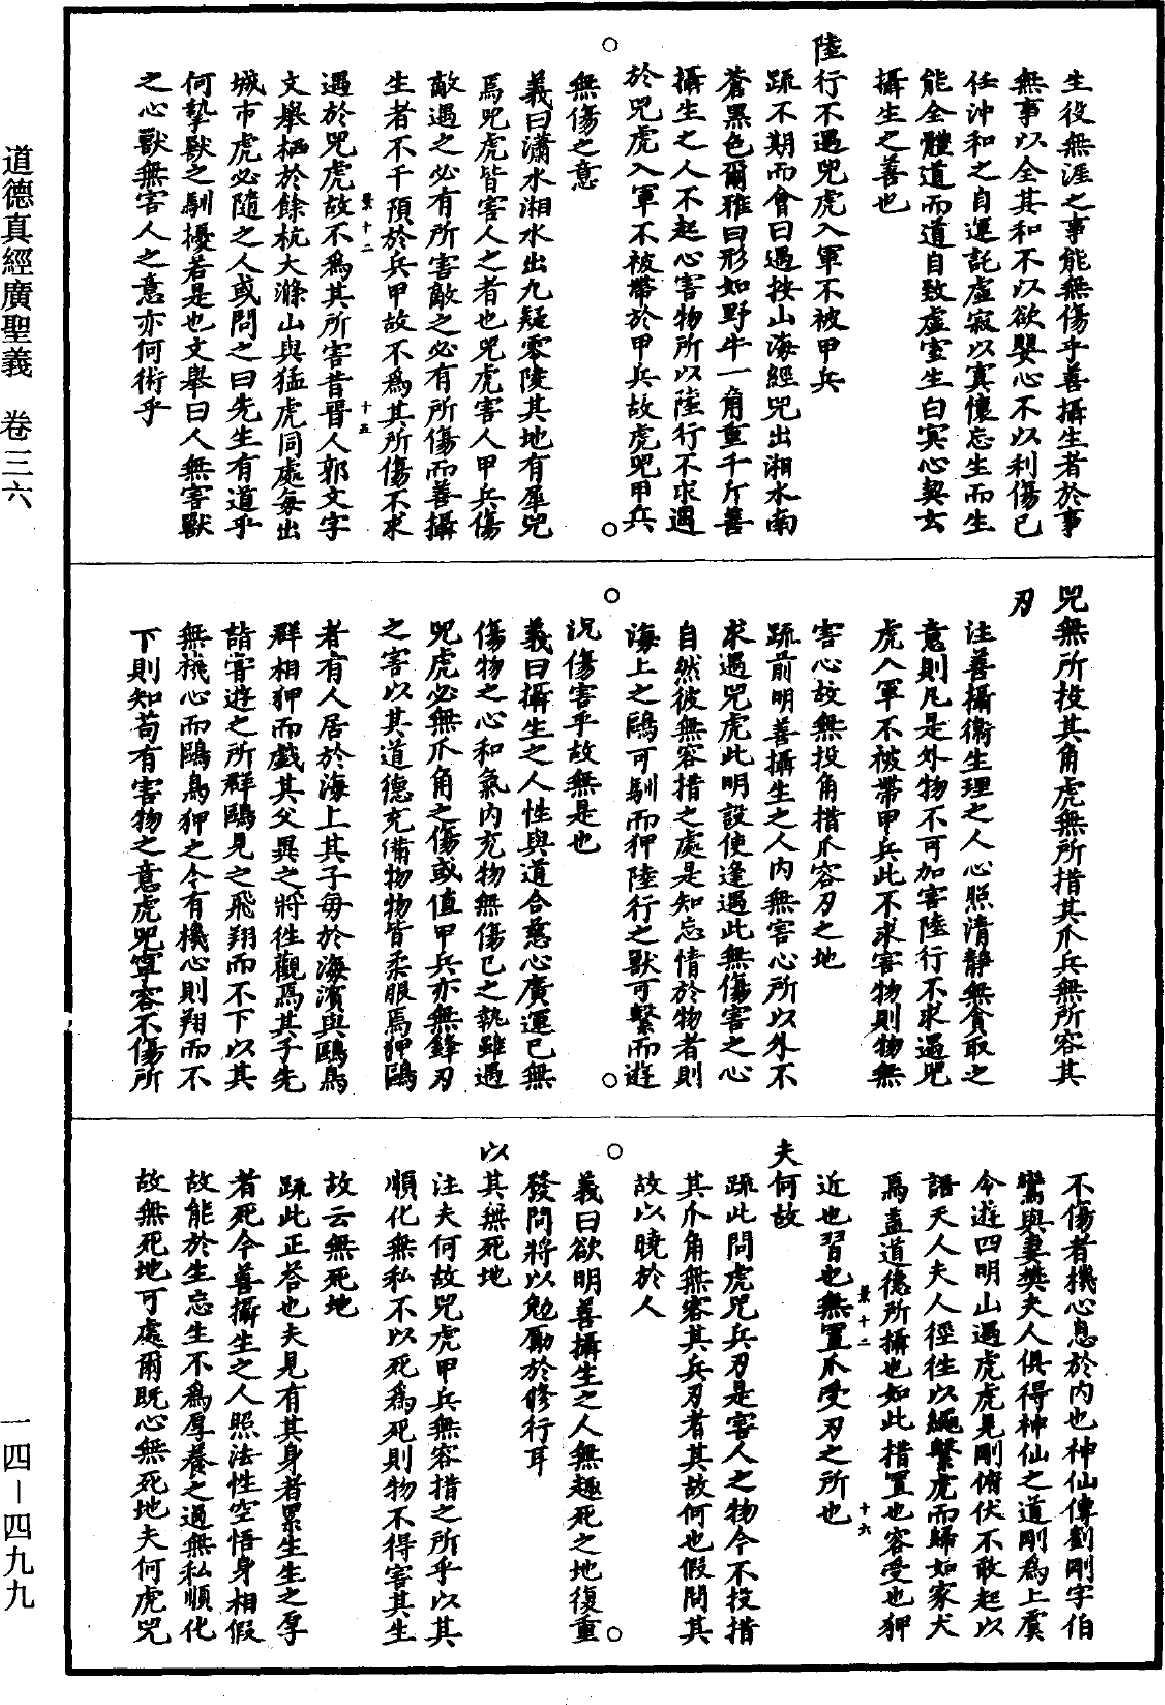 道德真經廣聖義　卷三六
一四—四九九
生役無涯之事能無傷乎善攝生者於事
無事以全其和不以欲嬰心不以利傷己
任沖和之自運託虛寂以寘懷忘生而生
能全體道而道自致虛室生白冥心契玄
攝生之善也
陸行不遇兕虎入軍不被甲兵
疏不期而會曰遇按山海經兕出湘水南
蒼黑色爾雅曰形如野牛一角重千斤善
攝生之人不起心害物所以陸行不求遇
於兕虎入軍不被帶於甲兵故虎兕甲兵
無傷之意
義曰瀟水湘水出九疑零陵其地有犀兕
焉兕虎皆害人之者也兕虎害人甲兵傷
敵遇之必有所害敵之必有所傷而善攝
生者不干預於兵甲故不為其所傷不求
景十二
十五
遇於兕虎故不為其所害昔晉人郭文字
文舉栖於餘杭大滌山與猛虎同處每出
城市虎必隨之人或問之曰先生有道乎
何摯獸之馴擾若是也文舉曰人無害獸
之心獸無害人之意亦何術乎
兕無所投其角虎無所措其爪兵無所容其
刃
注善攝衛生理之人心照清靜無貪取之
意則凡是外物不可加害陸行不求遇兕
虎入軍不被帶甲兵此不求害物則物無
害心故無投角措爪容刃之地
疏前明善攝生之人內無害心所以外不
求遇兕虎此明設使逢遇此無傷害之心
自然彼無容措之處是知忘情於物者則
海上之鷗可馴而狎陸行之獸可繫而遊
況傷害乎故無是也
義曰攝生之人性與道合慈心廣運已無
傷物之心和氣內充物無傷已之執雖遇
兕虎必無爪角之傷或值甲兵亦無鋒刃
之害以其道德充備物物皆柔服焉狎鷗
者有人居於海上其子每於海濱與鷗鳥
群相狎而戲其父異之將徃觀焉其子先
詣宿遊之所群鷗見之飛翔而不下以其
無機心而鷗鳥狎之今有機心則翔而不
下則知苟有害物之意虎兕寧容不傷所
不傷者機心息於內也神仙傳劉剛字伯
鸞與妻樊夫人俱得神仙之道剛為上虞
令遊四明山遇虎虎見剛俯伏不敢起以
語夫人夫人徑徃以繩繫虎而歸如家犬
焉蓋道德所攝也如此措置也容受也狎
景十二
十六
近也習也無置爪受刃之所也
夫何故
疏此問虎兕兵刃是害人之物今不投措
其爪角無容其兵刃者其故何也假問其
故以曉於人
義曰欲明善攝生之人無趣死之地復重
發問將以勉勵於修行耳
以其無死地
注夫何故兕虎甲兵無容措之所乎以其
順化無私不以死為死則物不得害其生
故云無死地
疏此正荅也夫見有其身者累生生之厚
者死今善攝生之人照法性空悟身相假
故能於生忘生不為厚養之過無私順化
故無死地可處爾既心無死地夫何虎兕